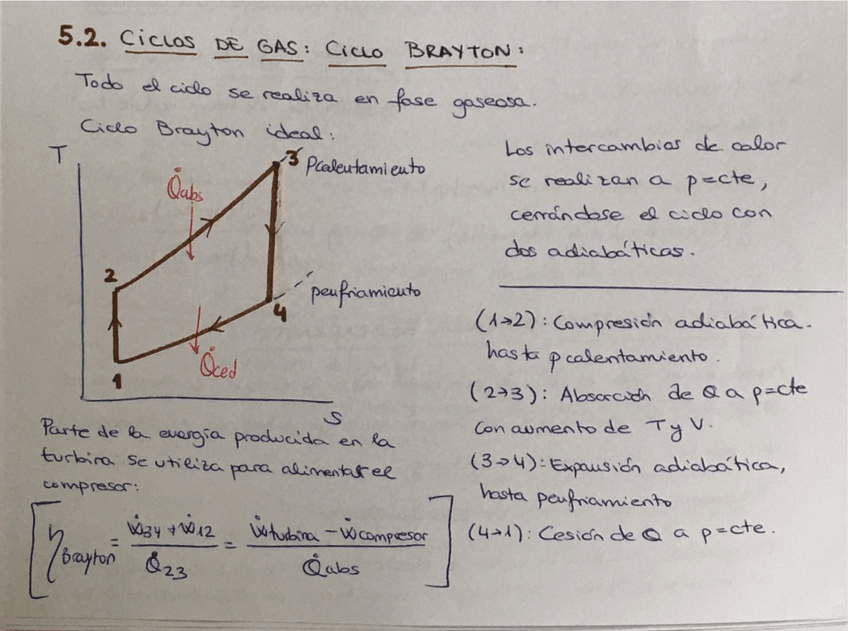 5.2. CICLOS DE GAS: CICLO BRAYTON:
Todo el ciclo se realiza en fase gaseosa.
Ciclo Brayton ideal:
T
3
Pcalentamiento
Q̇abs
2
4
penfriamiento
Q̇ced
1
S
Parte de la energía producida en la
turbina se utiliza para alimentar el
compresor:
ηBrayton = Ẇ34 + Ẇ12 / Q̇23 = Ẇturbina - Ẇcompresor / Q̇abs
Los intercambios de calor
se realizan a p=cte,
cerrándose el ciclo con
dos adiabáticas.
(1→2): Compresión adiabática.
hasta pcalentamiento.
(2→3): Absorción de Q a p=cte
con aumento de T y V.
(3→4): Expansión adiabática,
hasta penfriamiento
(4→1): Cesión de Q a p=cte.